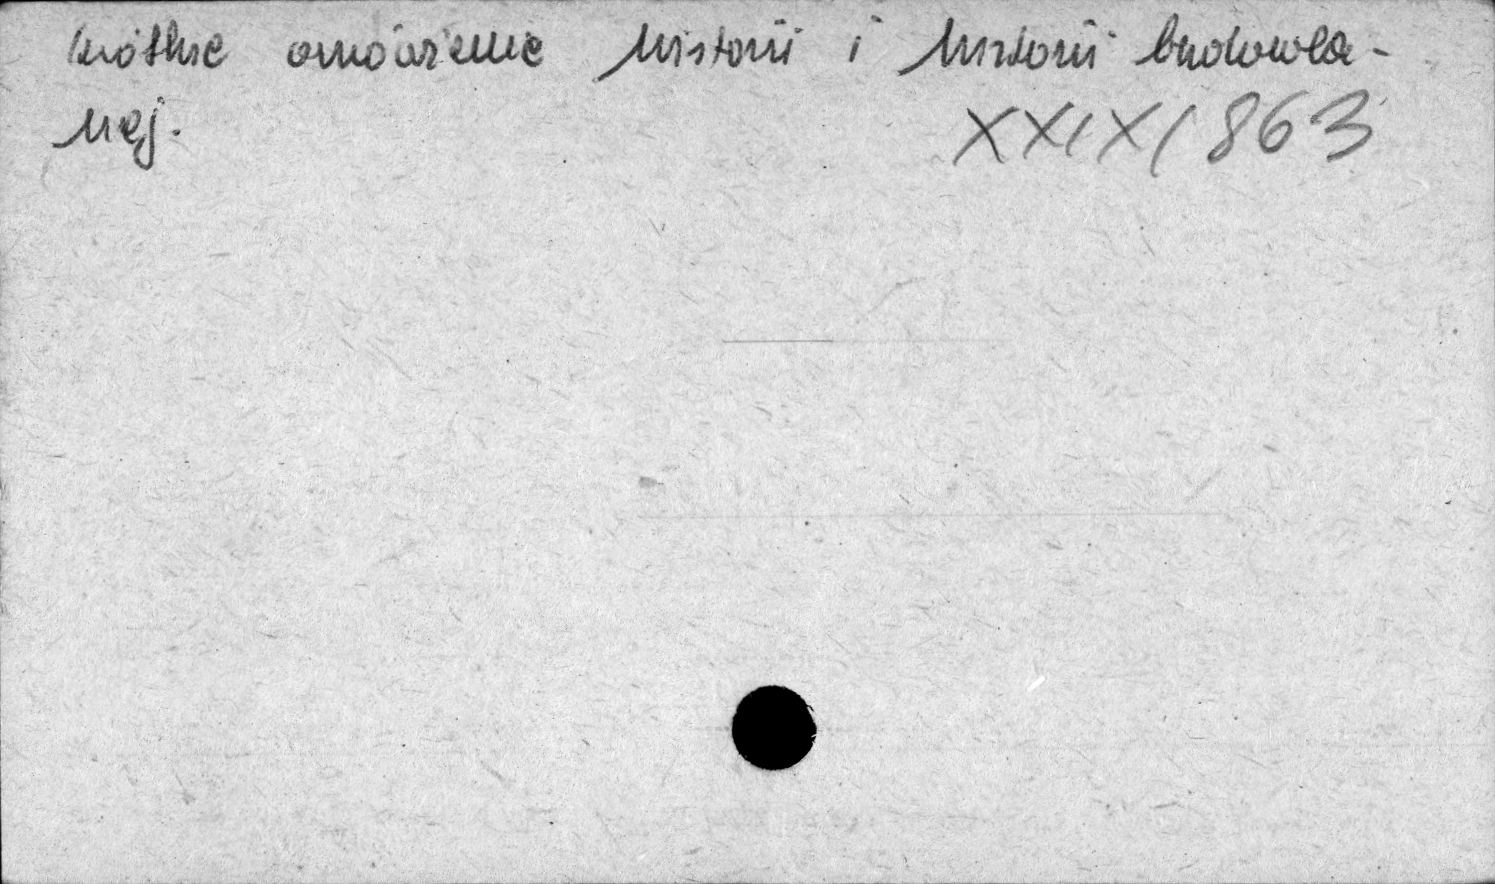 krótkie omówienie historii i historii budowla-
nej.
XXIX/863